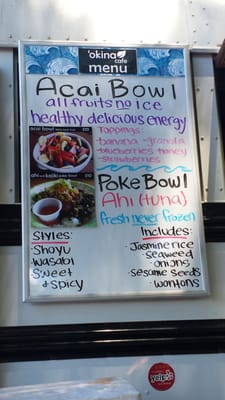 'okina
cafe
menu
Acai Bowl
all fruits no ice
healthy delicious energy
acai bowl
Toppings
- banana - granola
- blueberries - honey
- strawberries
Poke Bowl
Ahi (tuna)
fresh never frozen
Styles:
· Shoyu
· wasabi
· Sweet
& spicy
Includes:
· Jasmine rice
· seaweed
· onions
· sesame seeds
· wontons
yelp